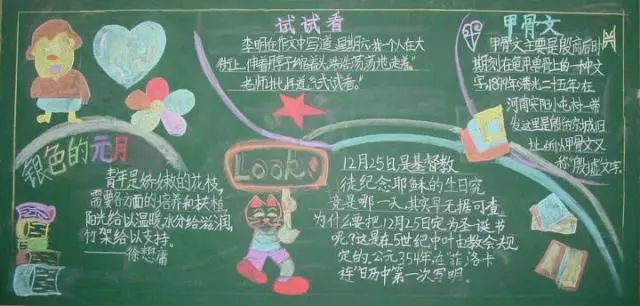 试试看
李明在作文中写道,星期六我一个人在大
街上,伸着脖子,缩着头,浩浩荡荡地走着。"
老师批道"试试看。"
甲骨文
甲骨文主要是殷商后时
期刻在龟甲兽骨上的一种文
字,1899年清光二十五年在
河南安阳小屯村一带
发这里是殷的京城旧
址,所以甲骨文又
称"殷墟文字.
银色的元月
青年是娇嫩的花枝,
需要各方面的培养和扶植
阳光给以温暖,水分给滋润,
竹架给以支持。
——徐懋庸
Look!
12月25日是基督教
徒纪念耶稣的生日究
竟是哪一天,其实早无据可查,
为什么要把12月25日定为圣诞节
呢?这是在5世纪中叶由教会规
定的,公元354年在"菲洛卡
连"日历中第一次写明。